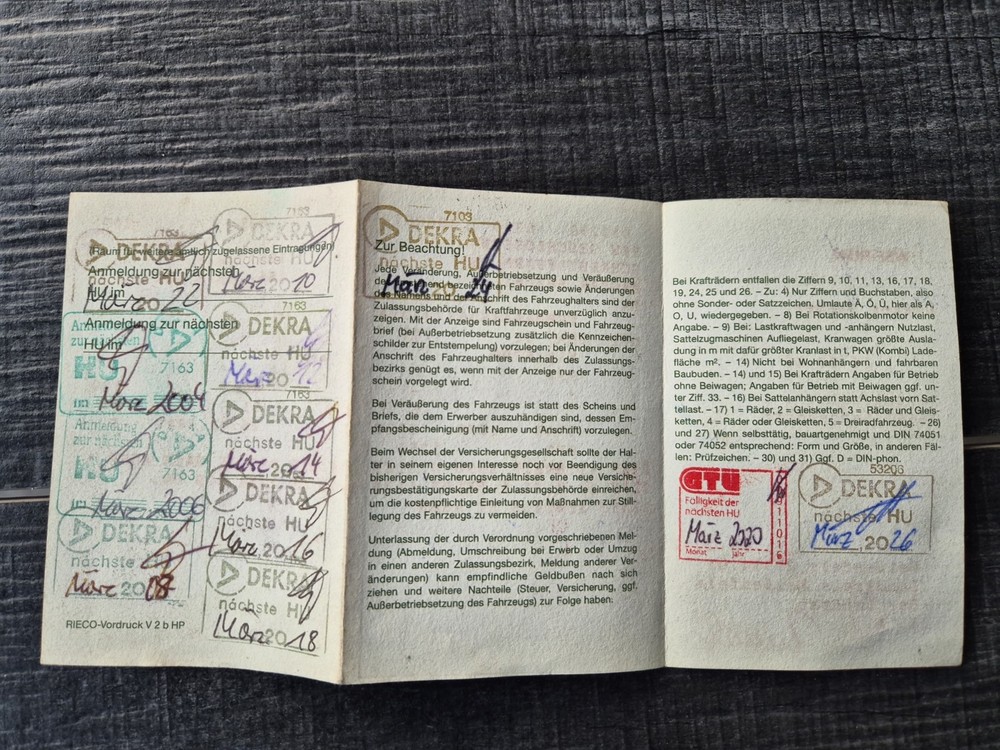 7163
DEKRA
(Raum für weitere amtlich zugelassene Eintragungen)
Anmeldung zur nächsten
HU im
nächste HU
März 2022
Anmeldung zur nächsten
HU im
7163
DEKRA
nächste HU
März 2010
Anmeldung
zur nächsten
HU
7163
im März 2004
7163
DEKRA
nächste HU
März 2012
Anmeldung
zur nächsten
HU
7163
im März 2006
7163
DEKRA
nächste HU
März 2014
DEKRA
nächste HU
März 2008
DEKRA
nächste HU
März 2016
DEKRA
nächste HU
März 2018
RIECO-Vordruck V 2 b HP
7103
DEKRA
nächste HU
März 24
Zur Beachtung!
Jede Veränderung, Außerbetriebsetzung und Veräußerung
des umstehend bezeichneten Fahrzeugs sowie Änderungen
des Namens und der Anschrift des Fahrzeughalters sind der
Zulassungsbehörde für Kraftfahrzeuge unverzüglich anzu-
zeigen. Mit der Anzeige sind Fahrzeugschein und Fahrzeug-
brief (bei Außerbetriebsetzung zusätzlich die Kennzeichen-
schilder zur Entstempelung) vorzulegen; bei Änderungen der
Anschrift des Fahrzeughalters innerhalb des Zulassungs-
bezirks genügt es, wenn mit der Anzeige nur der Fahrzeug-
schein vorgelegt wird.
Bei Veräußerung des Fahrzeugs ist statt des Scheins und
Briefs, die dem Erwerber auszuhändigen sind, dessen Em-
pfangsbescheinigung (mit Name und Anschrift) vorzulegen.
Beim Wechsel der Versicherungsgesellschaft sollte der Hal-
ter in seinem eigenen Interesse noch vor Beendigung des
bisherigen Versicherungsverhältnisses eine neue Versiche-
rungsbestätigungskarte der Zulassungsbehörde einreichen,
um die kostenpflichtige Einleitung von Maßnahmen zur Still-
legung des Fahrzeugs zu vermeiden.
Unterlassung der durch Verordnung vorgeschriebenen Mel-
dung (Abmeldung, Umschreibung bei Erwerb oder Umzug
in einen anderen Zulassungsbezirk, Meldung anderer Ver-
änderungen) kann empfindliche Geldbußen nach sich
ziehen und weitere Nachteile (Steuer, Versicherung, ggf.
Außerbetriebsetzung des Fahrzeugs) zur Folge haben.
Bei Krafträdern entfallen die Ziffern 9, 10, 11, 13, 16, 17, 18,
19, 24, 25 und 26. – Zu: 4) Nur Ziffern und Buchstaben, also
ohne Sonder- oder Satzzeichen. Umlaute Ä, Ö, Ü, hier als A,
O, U, wiedergegeben. – 8) Bei Rotationskolbenmotor keine
Angabe. – 9) Bei: Lastkraftwagen und -anhängern Nutzlast,
Sattelzugmaschinen Aufliegelast, Kranwagen größte Ausla-
dung in m mit dafür größter Kranlast in t, PKW (Kombi) Lade-
fläche m². – 14) Nicht bei Wohnanhängern und fahrbaren
Baubuden. – 14) und 15) Bei Krafträdern Angaben für Betrieb
ohne Beiwagen; Angaben für Betrieb mit Beiwagen ggf. un-
ter Ziff. 33. – 16) Bei Sattelanhängern statt Achslast vorn Sat-
tellast. – 17) 1 = Räder, 2 = Gleisketten, 3 = Räder und Gleis-
ketten, 4 = Räder oder Gleisketten, 5 = Dreiradfahrzeug. – 26)
und 27) Wenn selbsttätig, bauartgenehmigt und DIN 74051
oder 74052 entsprechend: Form und Größe, in anderen Fäl-
len: Prüfzeichen. – 30) und 31) Ggf. D = DIN-phon.
GTÜ
Fälligkeit der
nächsten HU
März 2020
Monat Jahr
53206
DEKRA
nächste HU
März 2026